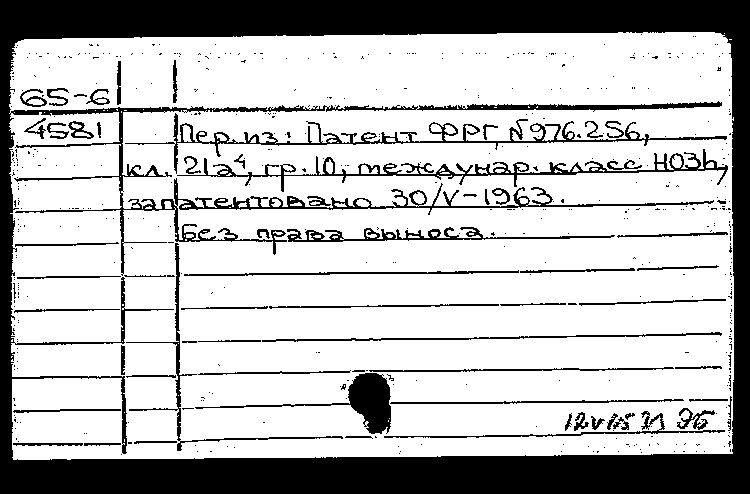 65-6
4581
Пер. из: Патент ФРГ, №976.256,
кл. 21а⁴, гр. 10, междунар. класс H03h,
запатентовано 30/V-1963.
Без права выноса.
ЭБ